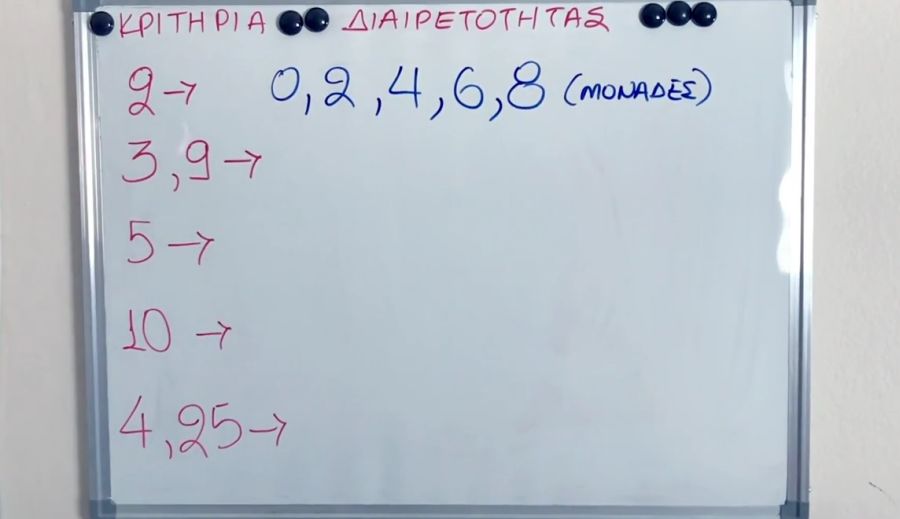 ΚΡΙΤΗΡΙΑ ΔΙΑΙΡΕΤΟΤΗΤΑΣ
2→ 0,2,4,6,8 (ΜΟΝΑΔΕΣ)
3,9→
5→
10→
4,25→